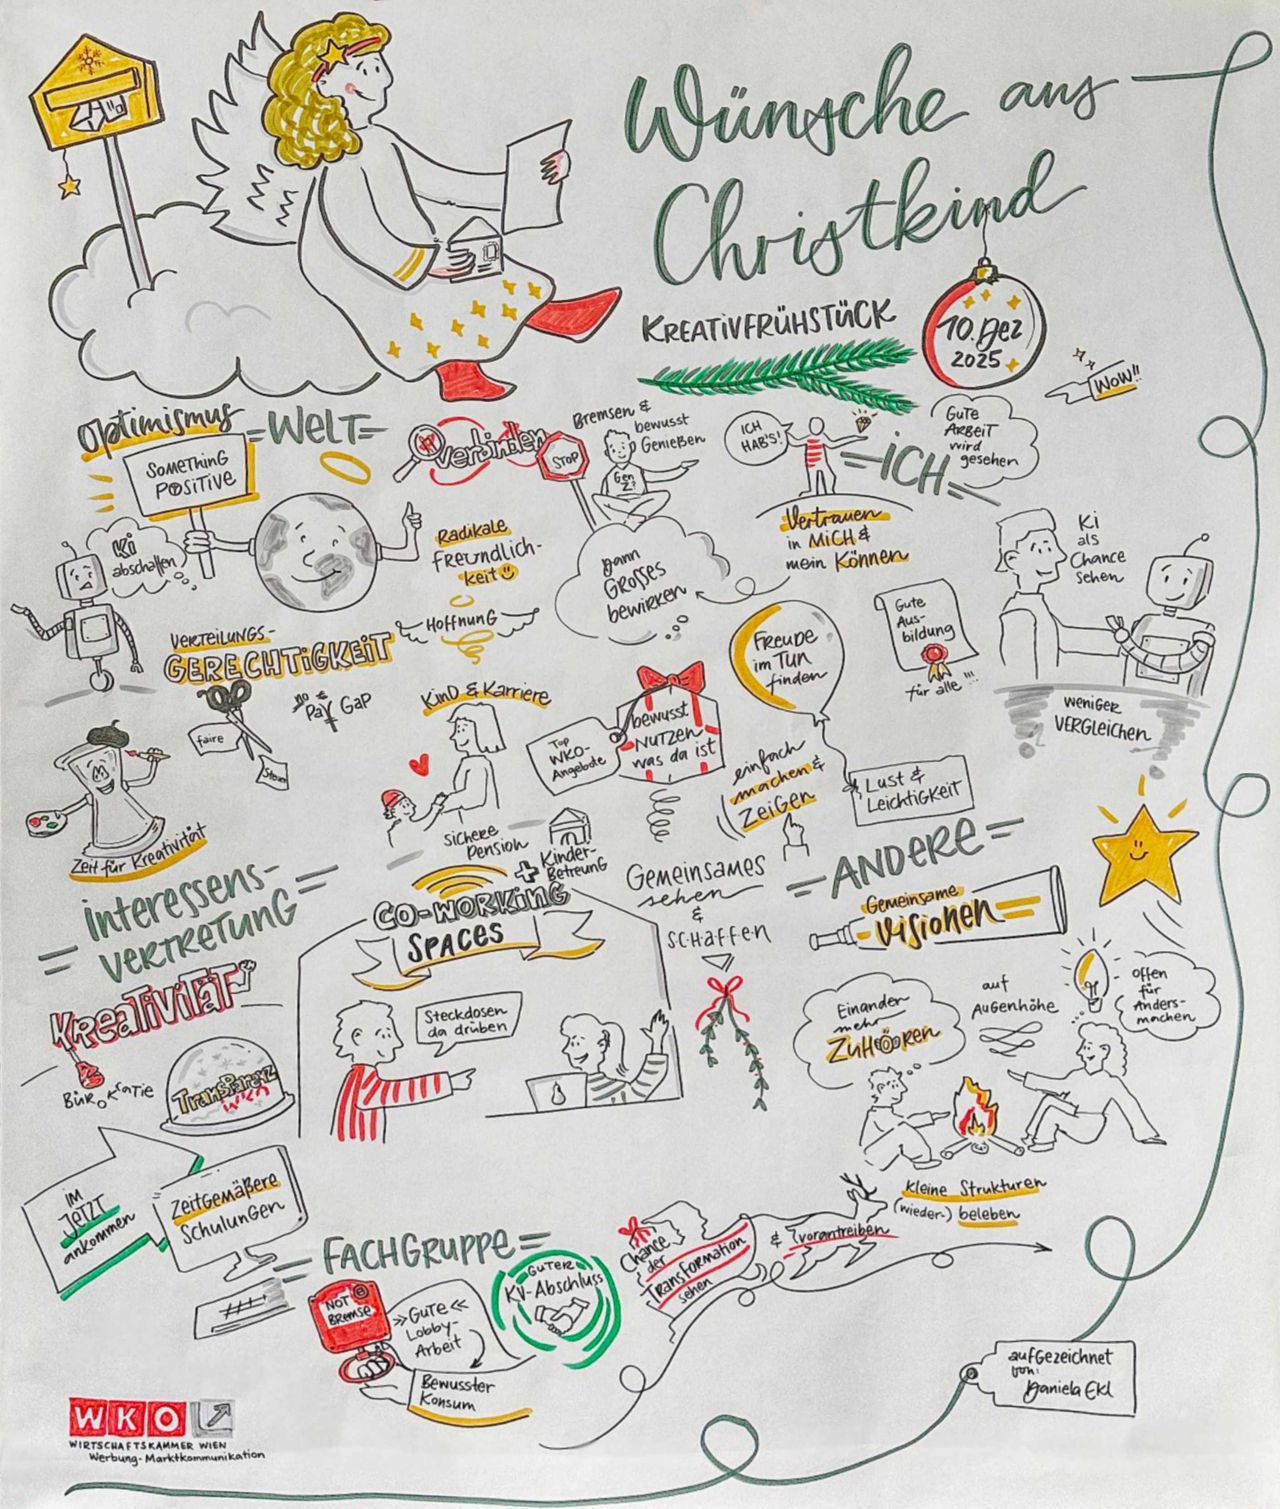 Wünsche ans
Christkind
KREATIVFRÜHSTÜCK
10. Dez
2025
WOW!!
Optimismus
SOMETHING
POSITIVE
=WELT=
verbinden
STOP
Bremsen &
bewusst
Genießen
Gen
Z?
ICH
HAB'S!
=ICH=
GUTE
ARBEIT
wird
gesehen
Vertrauen
in MICH &
mein Können
Ki
als
Chance
sehen
Ki
abschalten
Radikale
Freundlich-
keit
dann
GROSSES
bewirken
HOFFNUNG
VERTEILUNGS-
GERECHTIGKEIT
no
Pay GaP
faire
Steuer
KinD & Karriere
sichere
Pension
+ Kinder-
Betreuung
Top
WKO-
Angebote
bewusst
NUTZEN
was da ist
Freude
im TUN
finden
Gute
Aus-
bildung
für alle!!!
WENIGER
VERGLEICHEN
einfach
machen &
ZEIGEN
LUST &
LEICHTIGKEIT
Zeit für Kreativität
interessens-
VERTRETUNG
KREATIVITÄT
BÜROKRATIE
Transparenz
WKO
CO-WORKING
SPACES
Steckdosen
da drüben
GEMEINSAMES
sehen
&
SCHAFFEN
=ANDERE=
Gemeinsame
Visionen
Einander
mehr
ZUHÖREN
auf
AUGENHÖHE
offen
für
Anders-
machen
Kleine Strukturen
(wieder-) beleben
im
JETZT
ankommen
ZEITGEMÄßERE
SCHULUNGEN
=FACHGRUPPE=
NOT
BREMSE
>>GUTE<<
Lobby-
Arbeit
Bewusster
Konsum
GUTER
KV-Abschluss
Chance
der
TRANSFORMATION
sehen
& vorantreiben
aufgezeichnet
von:
Daniela Ekl
WKO
WIRTSCHAFTSKAMMER WIEN
Werbung-Marktkommunikation